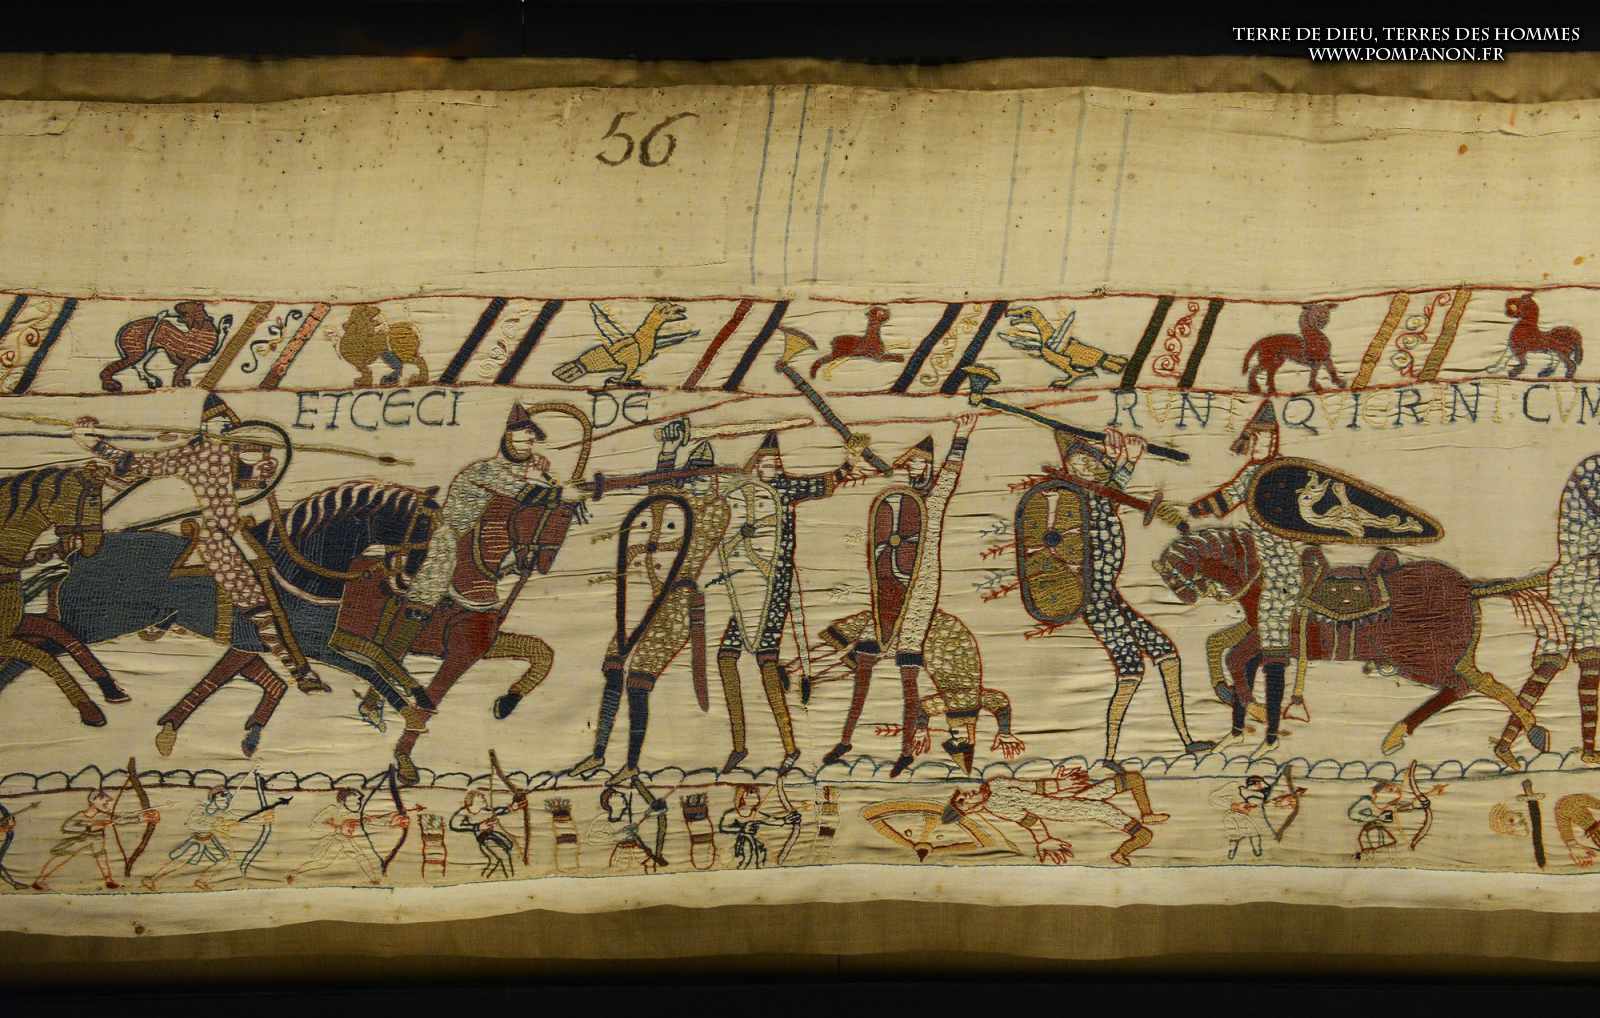 TERRE DE DIEU, TERRES DES HOMMES
WWW.POMPANON.FR
56
ET CECI DE RVNT QVI ERANT: CVM